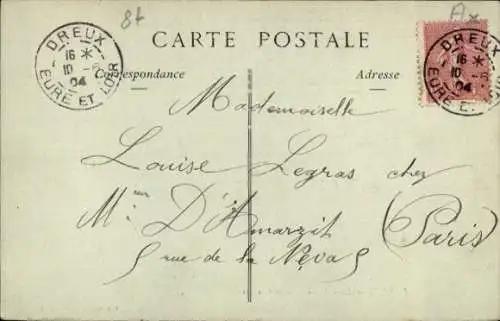 8t
Ax
CARTE POSTALE
DREUX
16 *
10 -6
04
EURE ET LOIR
DREUX
16 *
10
04
EURE ET LOIR
Correspondance
Adresse
Mademoiselle
Louise Legras chez
Mme D'Amarzit (Paris)
5 rue de la Néva 5